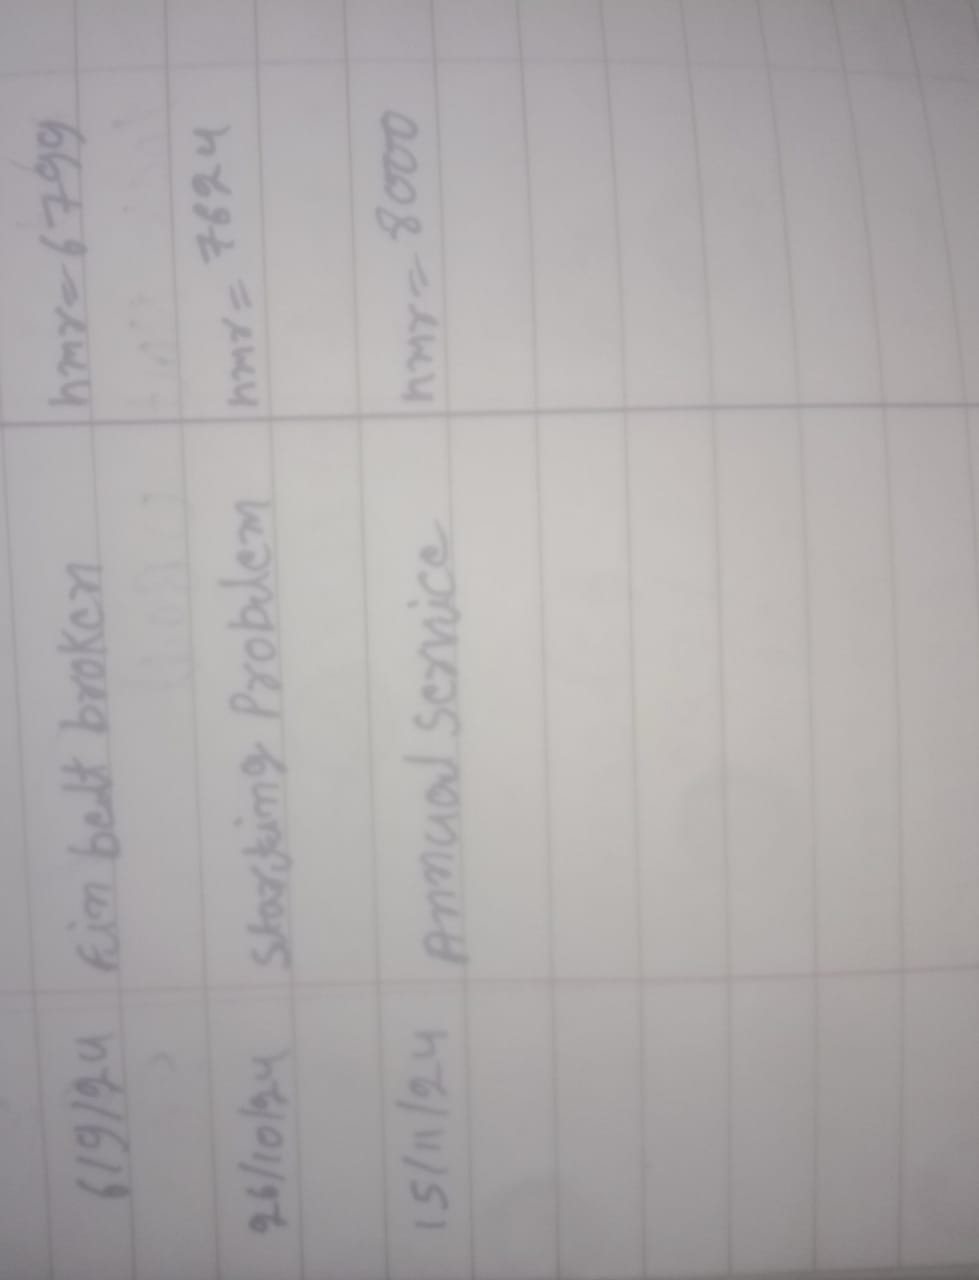 6/9/24 Fin belt broken hmr = 6799
26/10/24 Starting Problem hmr = 7624
15/11/24 Annual Service hmr = 8000